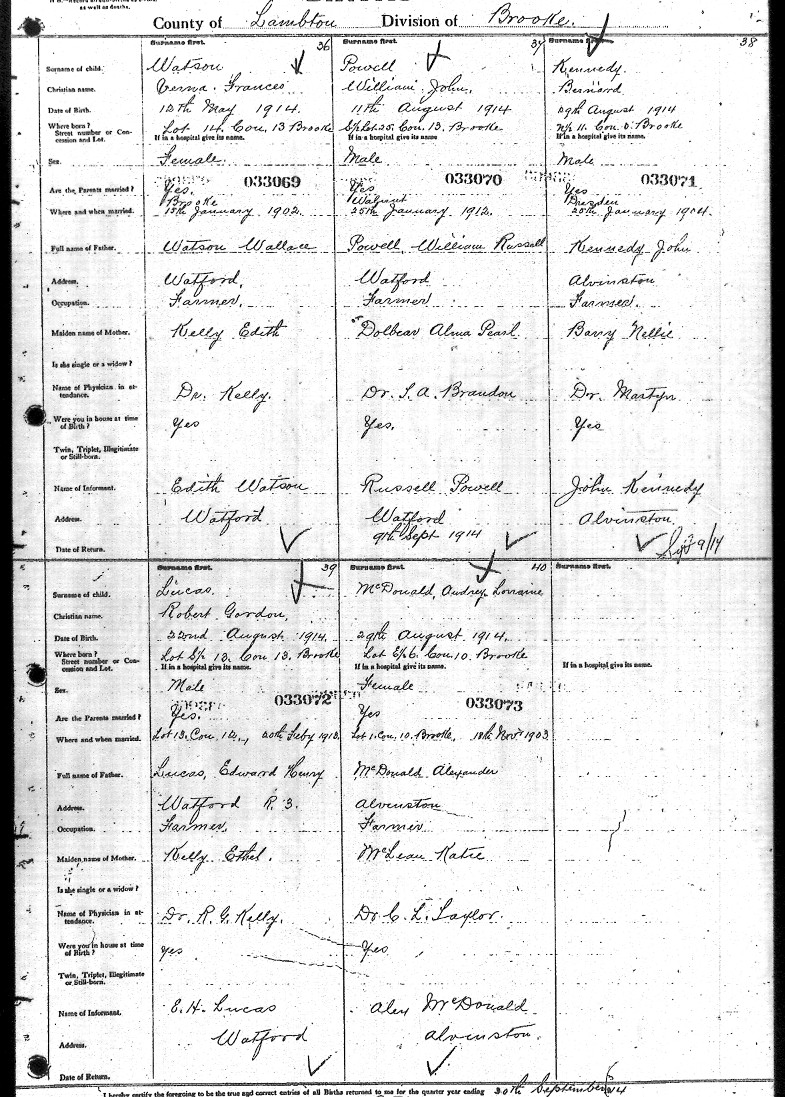 as well as deaths.
County of Lambton Division of Brooke.
Surname first. 36 Surname first. 37 Surname first. 38
Surname of child. Watson Powell Kennedy
Christian name. Verna Frances William John, Bernard
Date of Birth. 12th May 1914. 11th August 1914 29th August 1914
Where born? Lot 14. Con. 13 Brooke S/p Lot 25. Con. 13. Brooke N/p 11. Con. 5. Brooke
Street number or Concession and Lot. If in a hospital give its name. If in a hospital give its name If in a hospital give its name.
Sex. Female. Male Male
033069 033070 033071
Are the Parents married? Yes. Yes Yes
Brooke Walnut Dresden
Where and when married. 15th January 1902. 25th January 1912. 25th January 1904.
Full name of Father. Watson Wallace Powell, William Russell Kennedy John
Address. Watford, Watford Alvinston
Occupation. Farmer, Farmer Farmer.
Maiden name of Mother. Kelly Edith Dolbear Alma Pearl Barry Nellie
Is she single or a widow?
Name of Physician in attendance. Dr. Kelly. Dr. S. A. Brandon Dr. Martyn
Were you in house at time of Birth? Yes Yes. Yes
Twin, Triplet, Illegitimate or Still-born.
Name of Informant. Edith Watson Russell Powell John Kennedy
Address. Watford Watford Alvinston
Date of Return. 9th Sept 1914 9/14
Surname first. 39 Surname first. 40 Surname first.
Surname of child. Lucas. McDonald, Audrey Lorraine
Christian name. Robert Gordon,
Date of Birth. 22nd August 1914. 29th August 1914.
Where born? Lot S/p 13. Con 13. Brooke Lot E/p 6. Con. 10. Brooke
Street number or Concession and Lot. If in a hospital give its name. If in a hospital give its name. If in a hospital give its name.
Sex. Male Female
033072 033073
Are the Parents married? Yes. Yes
Where and when married. Lot 13. Con 12., 20th Feby 1913. Lot 1. Con. 10. Brooke, 18th Nov. 1903
Full name of Father. Lucas, Edward Henry McDonald Alexander
Address. Watford R. 3. Alvinston
Occupation. Farmer, Farmer
Maiden name of Mother. Kelly Ethel. McLean Katie
Is she single or a widow?
Name of Physician in attendance. Dr. R. G. Kelly. Dr C. L. Taylor.
Were you in house at time of Birth? Yes Yes
Twin, Triplet, Illegitimate or Still-born.
Name of Informant. E. H. Lucas Alex McDonald
Address. Watford Alvinston.
Date of Return.
I hereby certify the foregoing to be the true and correct entries of all Births returned to me for the quarter year ending 30th September